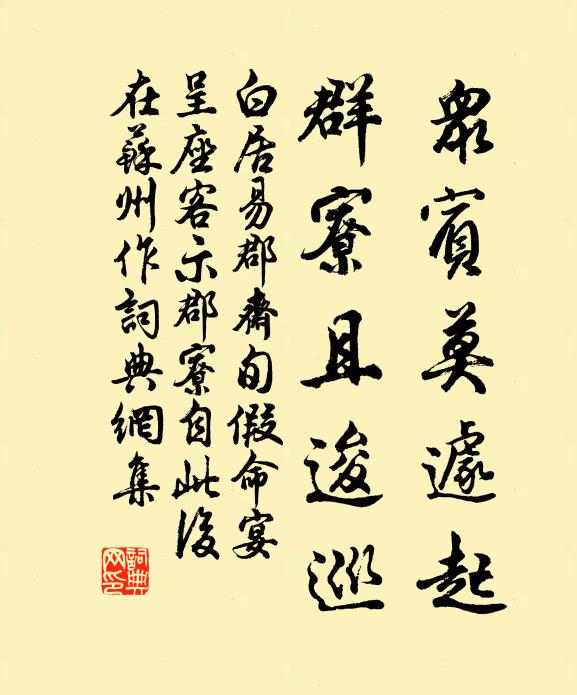 眾賓莫遽起
群寮且逡巡
白居易郡齋旬假命宴
呈座客示郡寮自此後
在蘇州作詞典網集
詞典
网印